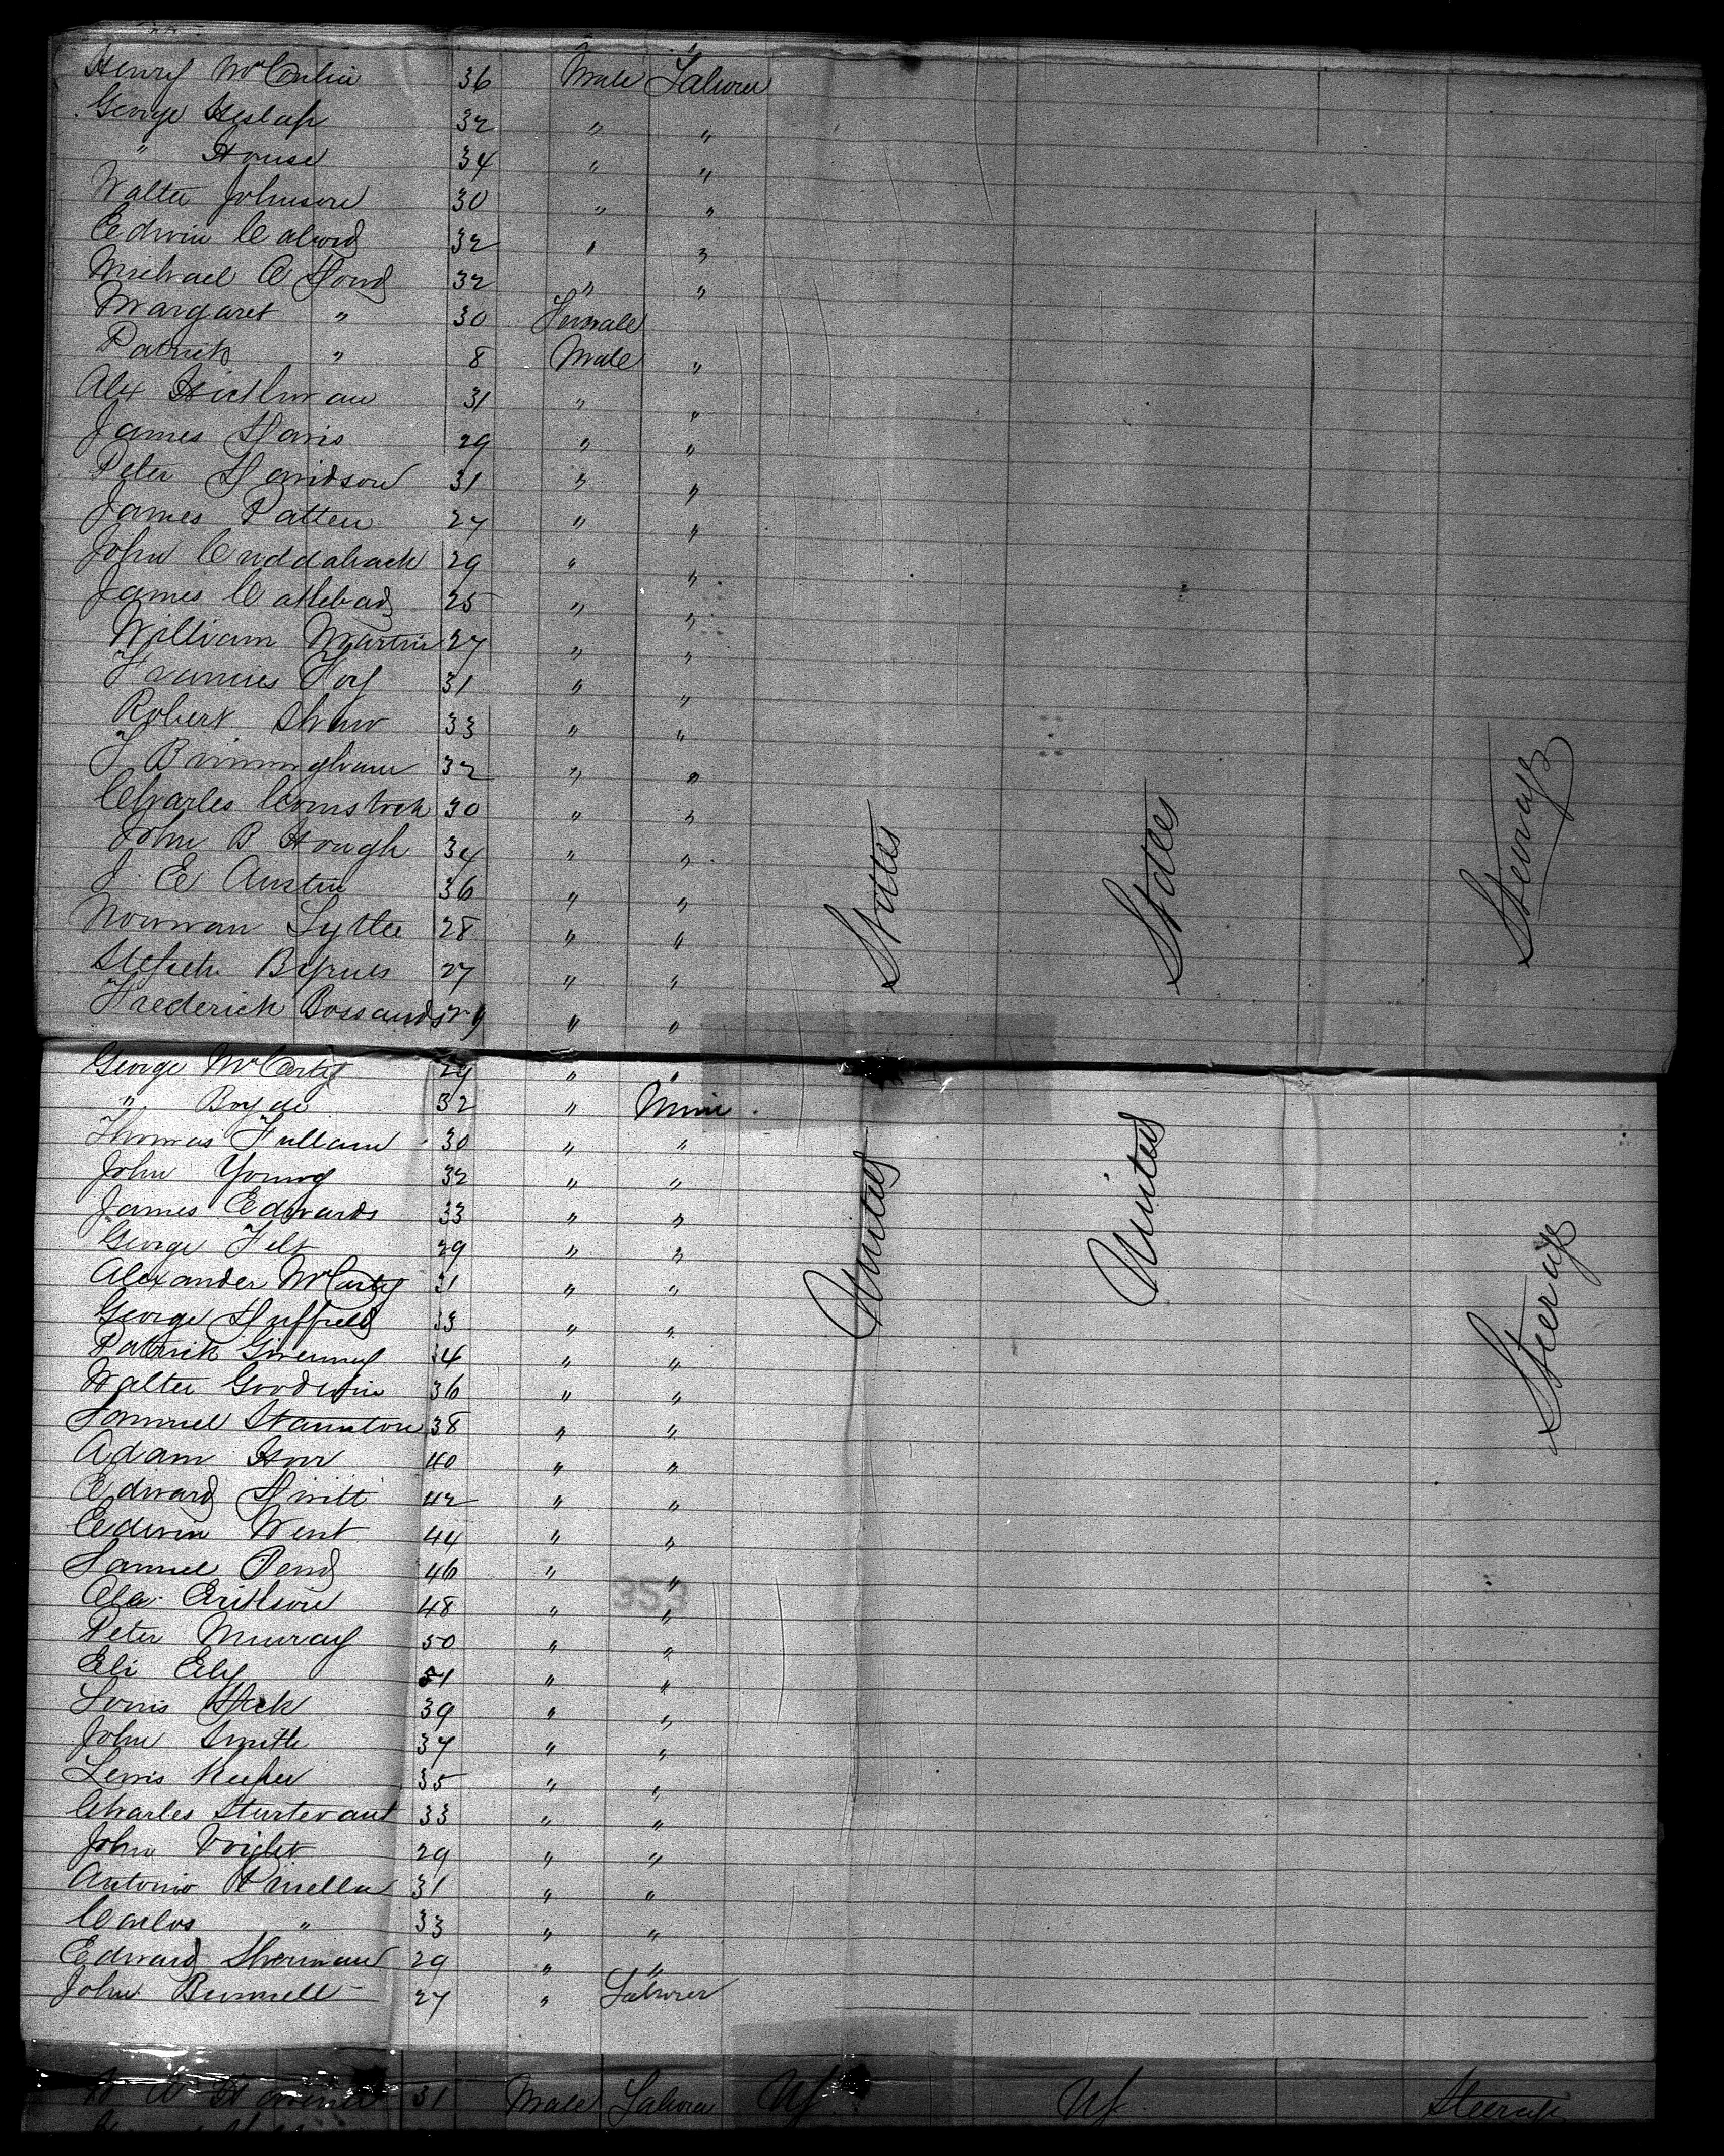 Henry McConlin 36 Male Laborer
George Heslap 32 " "
" House 34 " "
Walter Johnson 30 " "
Edwin 32 " "
Michael O 32 " "
Margaret " 30 Female
Patrick " 8 Male "
Alex 31 " "
James Davis 29 " "
Peter Davidson 31 " "
James Patten 27 " "
John Cuddaback 29 " "
James 25 " "
William Martin 27 " "
Foy 31 " "
Robert Shaw 33 " "
J Birmingham 32 " "
Charles Comstock 30 " "
John B Hough 34 " "
J. E Austin 36 " "
Norman Lyttle 28 " "
27 " "
Frederick 29 " "
States States Steerage
George McCarty 29 " "
" Boyde 32 " Mine
Thomas Fullam 30 " "
John Young 32 " "
James Edwards 33 " "
George Felt 29 " "
Alexander McCarty 31 " "
George Duffield 33 " "
Patrick 34 " "
Walter Goodwin 36 " "
Samuel Staunton 38 " "
Adam 40 " "
Edward 42 " "
Edwin Went 44 " "
Samuel 46 " "
353
Ola 48 " "
Peter Murray 50 " "
Eli Ely 51 " "
Louis 39 " "
John Smith 37 " "
Lewis Keefer 35 " "
Charles Sturtevant 33 " "
John 29 " "
Antonio 31 " "
Carlos " 33 " "
Edward Sherman 29 " "
John Bunnell 27 " Laborer
United United Steerage
31 Male Laborer US US Steerage